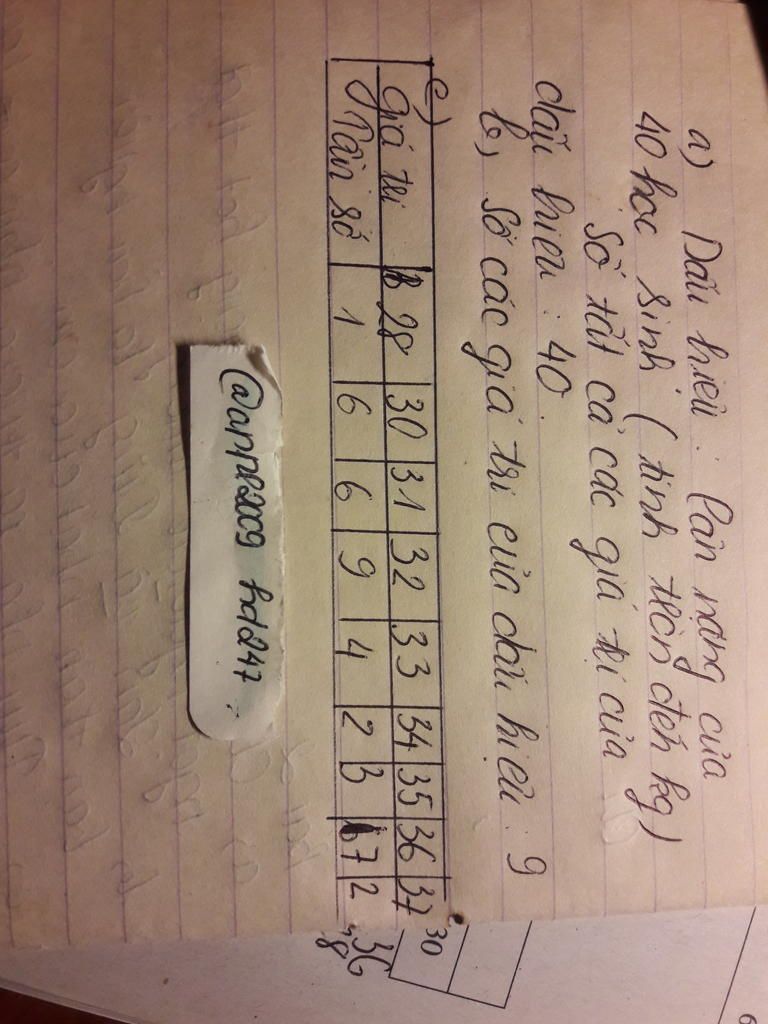 a) Dấu hiệu : Cân nặng của
40 học sinh (tính tròn đến kg)
Số tất cả các giá trị của
dấu hiệu : 40.
b, Số các giá trị của dấu hiệu : 9
c)
Giá trị 28 30 31 32 33 34 35 36 37
Tần số 1 6 6 9 4 2 3 7 2
30
36
8
6